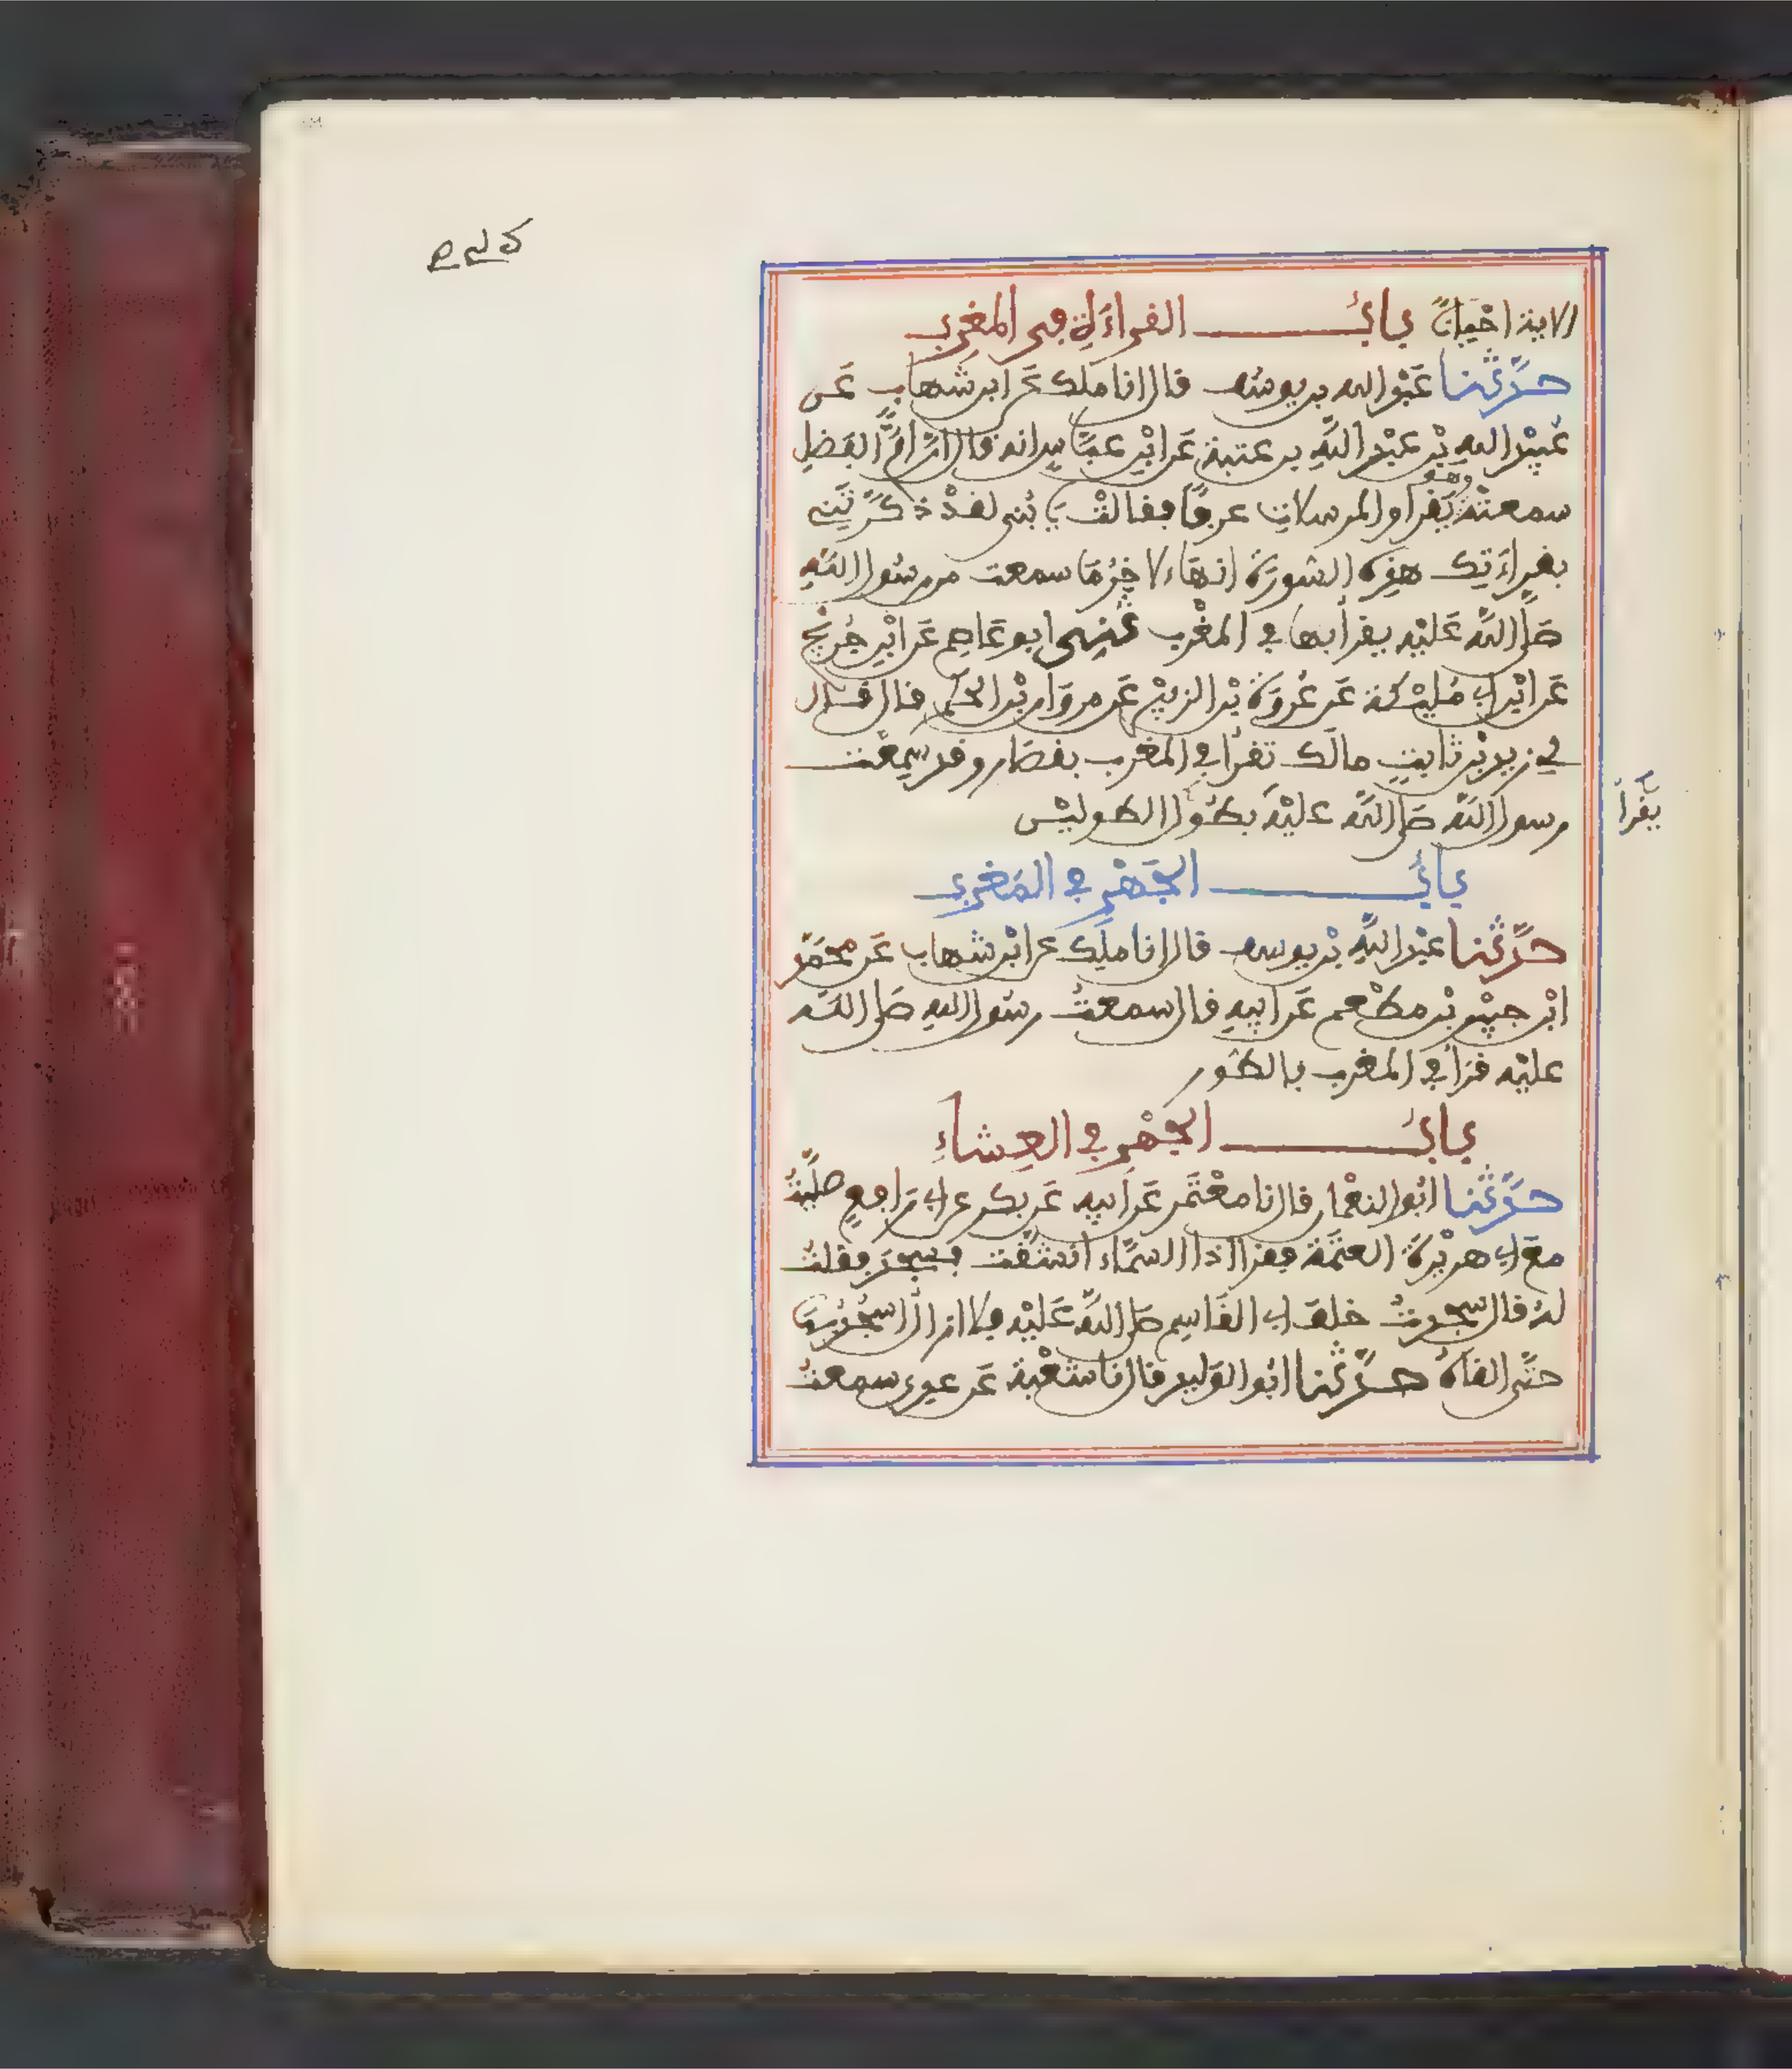 الاية احيانًا باب القراءة في المغرب
حدثنا عبد الله بن يوسف قال انا ملك عن ابن شهاب عن
عبيد الله بن عبد الله بن عتبة عن ابن عباس انه قال ان ام الفضل
سمعته وهو يقرا والمرسلات عرفا فقالت يا بني لقد ذكرتني
بقراءتك هذه السورة انها ءلاخر ما سمعت من رسول الله
صلى الله عليه يقرا بها في المغرب ثني ابو عاصم عن ابن جريج
عن ابن ابي مليكة عن عروة بن الزبير عن مروان بن الحكم قال قال
لي زيد بن ثابت مالك تقرا في المغرب بقصار وقد سمعت
رسول الله صلى الله عليه بطول الطوليين
يقرا
باب الجهر في المغرب
حدثنا عبد الله بن يوسف قال انا ملك عن ابن شهاب عن محمد
ابن جبير بن مطعم عن ابيه قال سمعت رسول الله صلى الله
عليه قرا في المغرب بالطور
باب الجهر في العشاء
حدثنا ابو النعمان قال نا معتمر عن ابيه عن بكر عن ابي رافع صليت
مع ابي هريرة العتمة فقرا اذا السماء انشقت فسجد فقلت
له قال سجدت خلف ابي القاسم صلى الله عليه فلا ازال اسجد بها
حتى القاه حدثنا ابو الوليد قال نا شعبة عن عدي سمعت